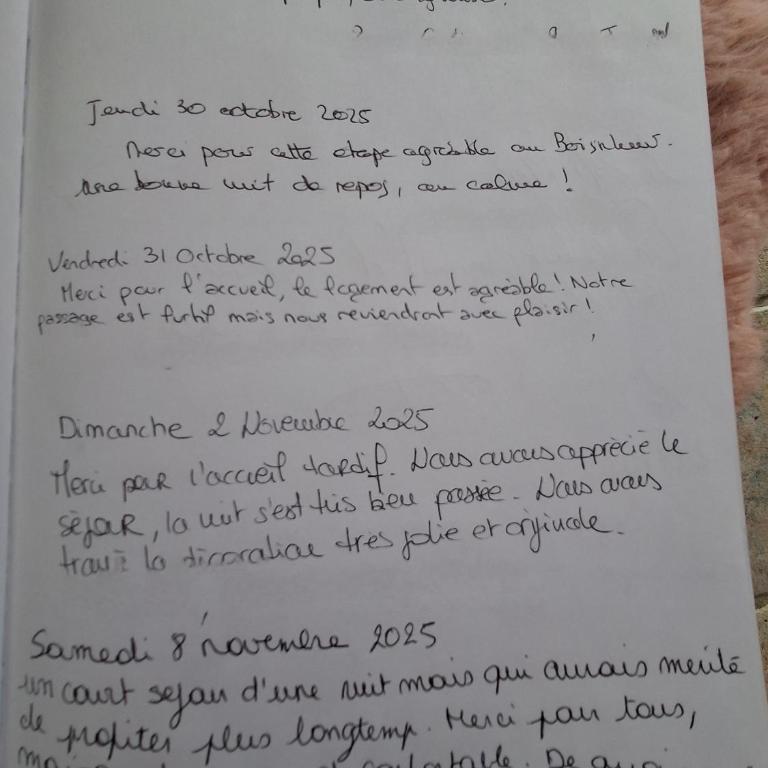 Jeudi 30 octobre 2025
Merci pour cette étape agréable au
une bonne nuit de repos, au calme !
Vendredi 31 Octobre 2025
Merci pour l'accueil, le logement est agréable ! Notre
passage est furtif mais nous reviendront avec plaisir !
Dimanche 2 Novembre 2025
Merci pour l'accueil tardif. Nous avons apprécié le
séjour, la nuit s'est très bien passée. Nous avons
trouvé la décoration très jolie et originale.
Samedi 8 novembre 2025
un court séjour d'une nuit mais qui aurais mérité
de profiter plus longtemp. Merci pour tous,
De